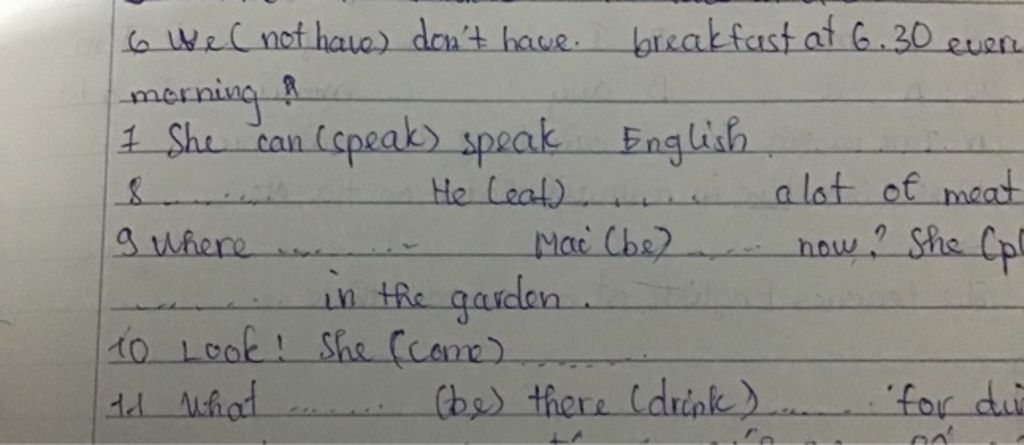 6 We (not have) don't have. breakfast at 6.30
morning
7 She can (speak) speak English
8 ........ He (eat) ..... a lot of meat
9 Where ........ Mai (be) ..... now? She
........ in the garden.
10 Look! She (come) ........
11 What ....... (be) there (drink) ..... for